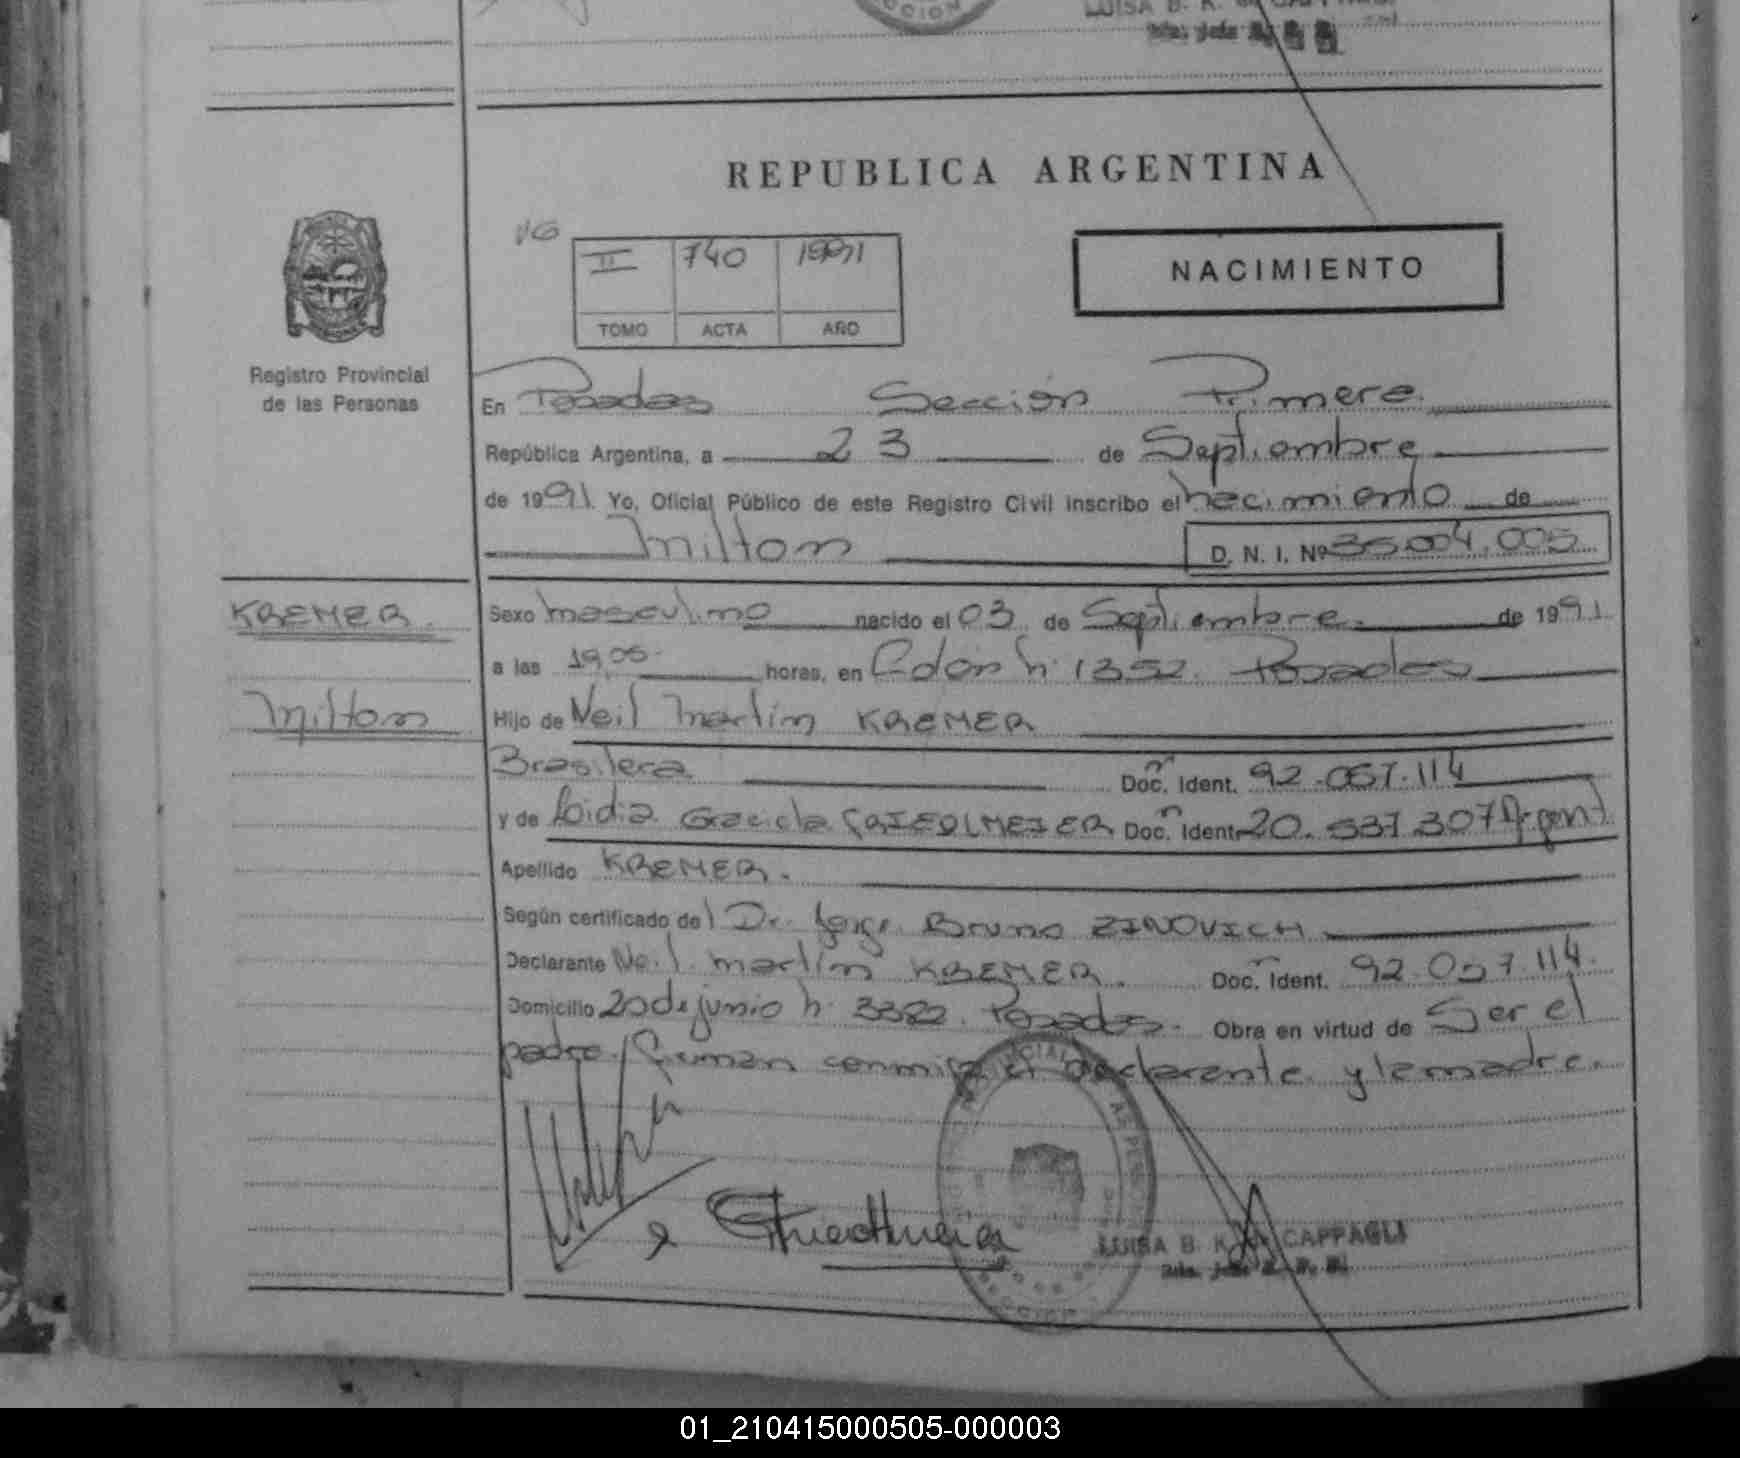 REPUBLICA ARGENTINA
VG
II 740 1991
TOMO ACTA AÑO
NACIMIENTO
Registro Provincial
de las Personas
En Posadas Sección Primera
República Argentina, a 23 de Septiembre
de 1991. Yo, Oficial Público de este Registro Civil inscribo el nacimiento de
Milton D. N. I. Nº 36.004.005
KREMER.
Sexo masculino nacido el 03 de Septiembre. de 1991
a las 19,05. horas, en Colón n: 1352. Posadas
Milton
Hijo de Neil Martín KREMER
Brasilera Doc. Ident. 92.057.114
y de Lidia Graciela Doc. Ident. 20.537.307 Argent
Apellido KREMER.
Según certificado del Dr. Jorge Bruno ZINOVICH
Declarante Neil Martín KREMER. Doc. Ident. 92.057.114.
Domicilio 20 de junio n: 3322. Posadas. Obra en virtud de Ser el
padre. Firman conmigo el declarante y la madre.
LUISA B. K. DE CAPPAGLI
SECCION
01_210415000505-000003